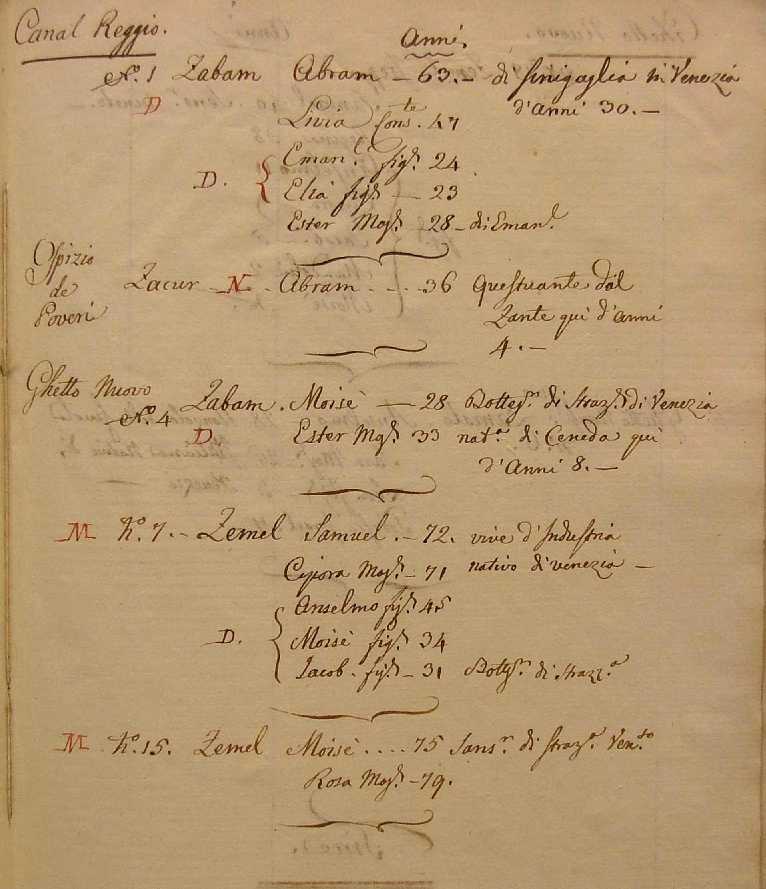 Canal Reggio.
Anni.
N.º 1 Zabam Abram — 63. — di Sinigaglia in Venezia
D d'anni 30. —
Livia Cons.te 47
Eman.l fig.º 24
D. Elia fig.º — 23
Ester Mog.e 28 — di Eman.l
Ospizio
de
Poveri
Zacur N. Abram . . . 36 Questuante dal
Zante qui d'anni
4. —
Ghetto Nuovo
N.º 4 Zabam . Moisè — 28 Botteg.r di Straz.e di Venezia
D. Ester Mog.e 33 nat.a di Ceneda qui
d'Anni 8. —
M N.º 7. — Zemel Samuel . — 72. vive d'Industria
Cipora Mog.e — 71 nativo di Venezia —
Anselmo fig.º 45
D. Moisè fig.º 34
Iacob . fig.º — 31 Botteg.r di Strazz.a
M N.º 15. Zemel Moisè . . . . 75 Sans.r di Straz.e Ven.to
Rosa Mog.e — 79.